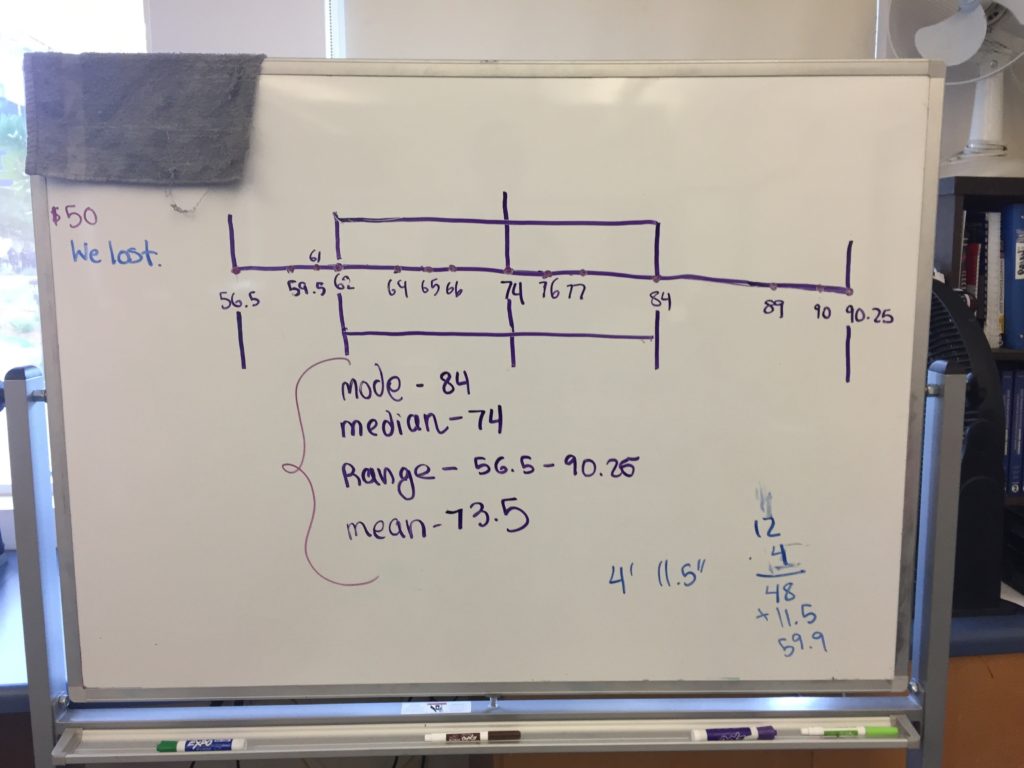 $50
We lost.
61
56.5 59.5 62 64 65 66 74 76 77 84 89 90 90.25
mode - 84
median - 74
Range - 56.5 - 90.25
mean - 73.5
4' 11.5"
12
4
48
+ 11.5
59.9
EXPO
EXPO
EXPO